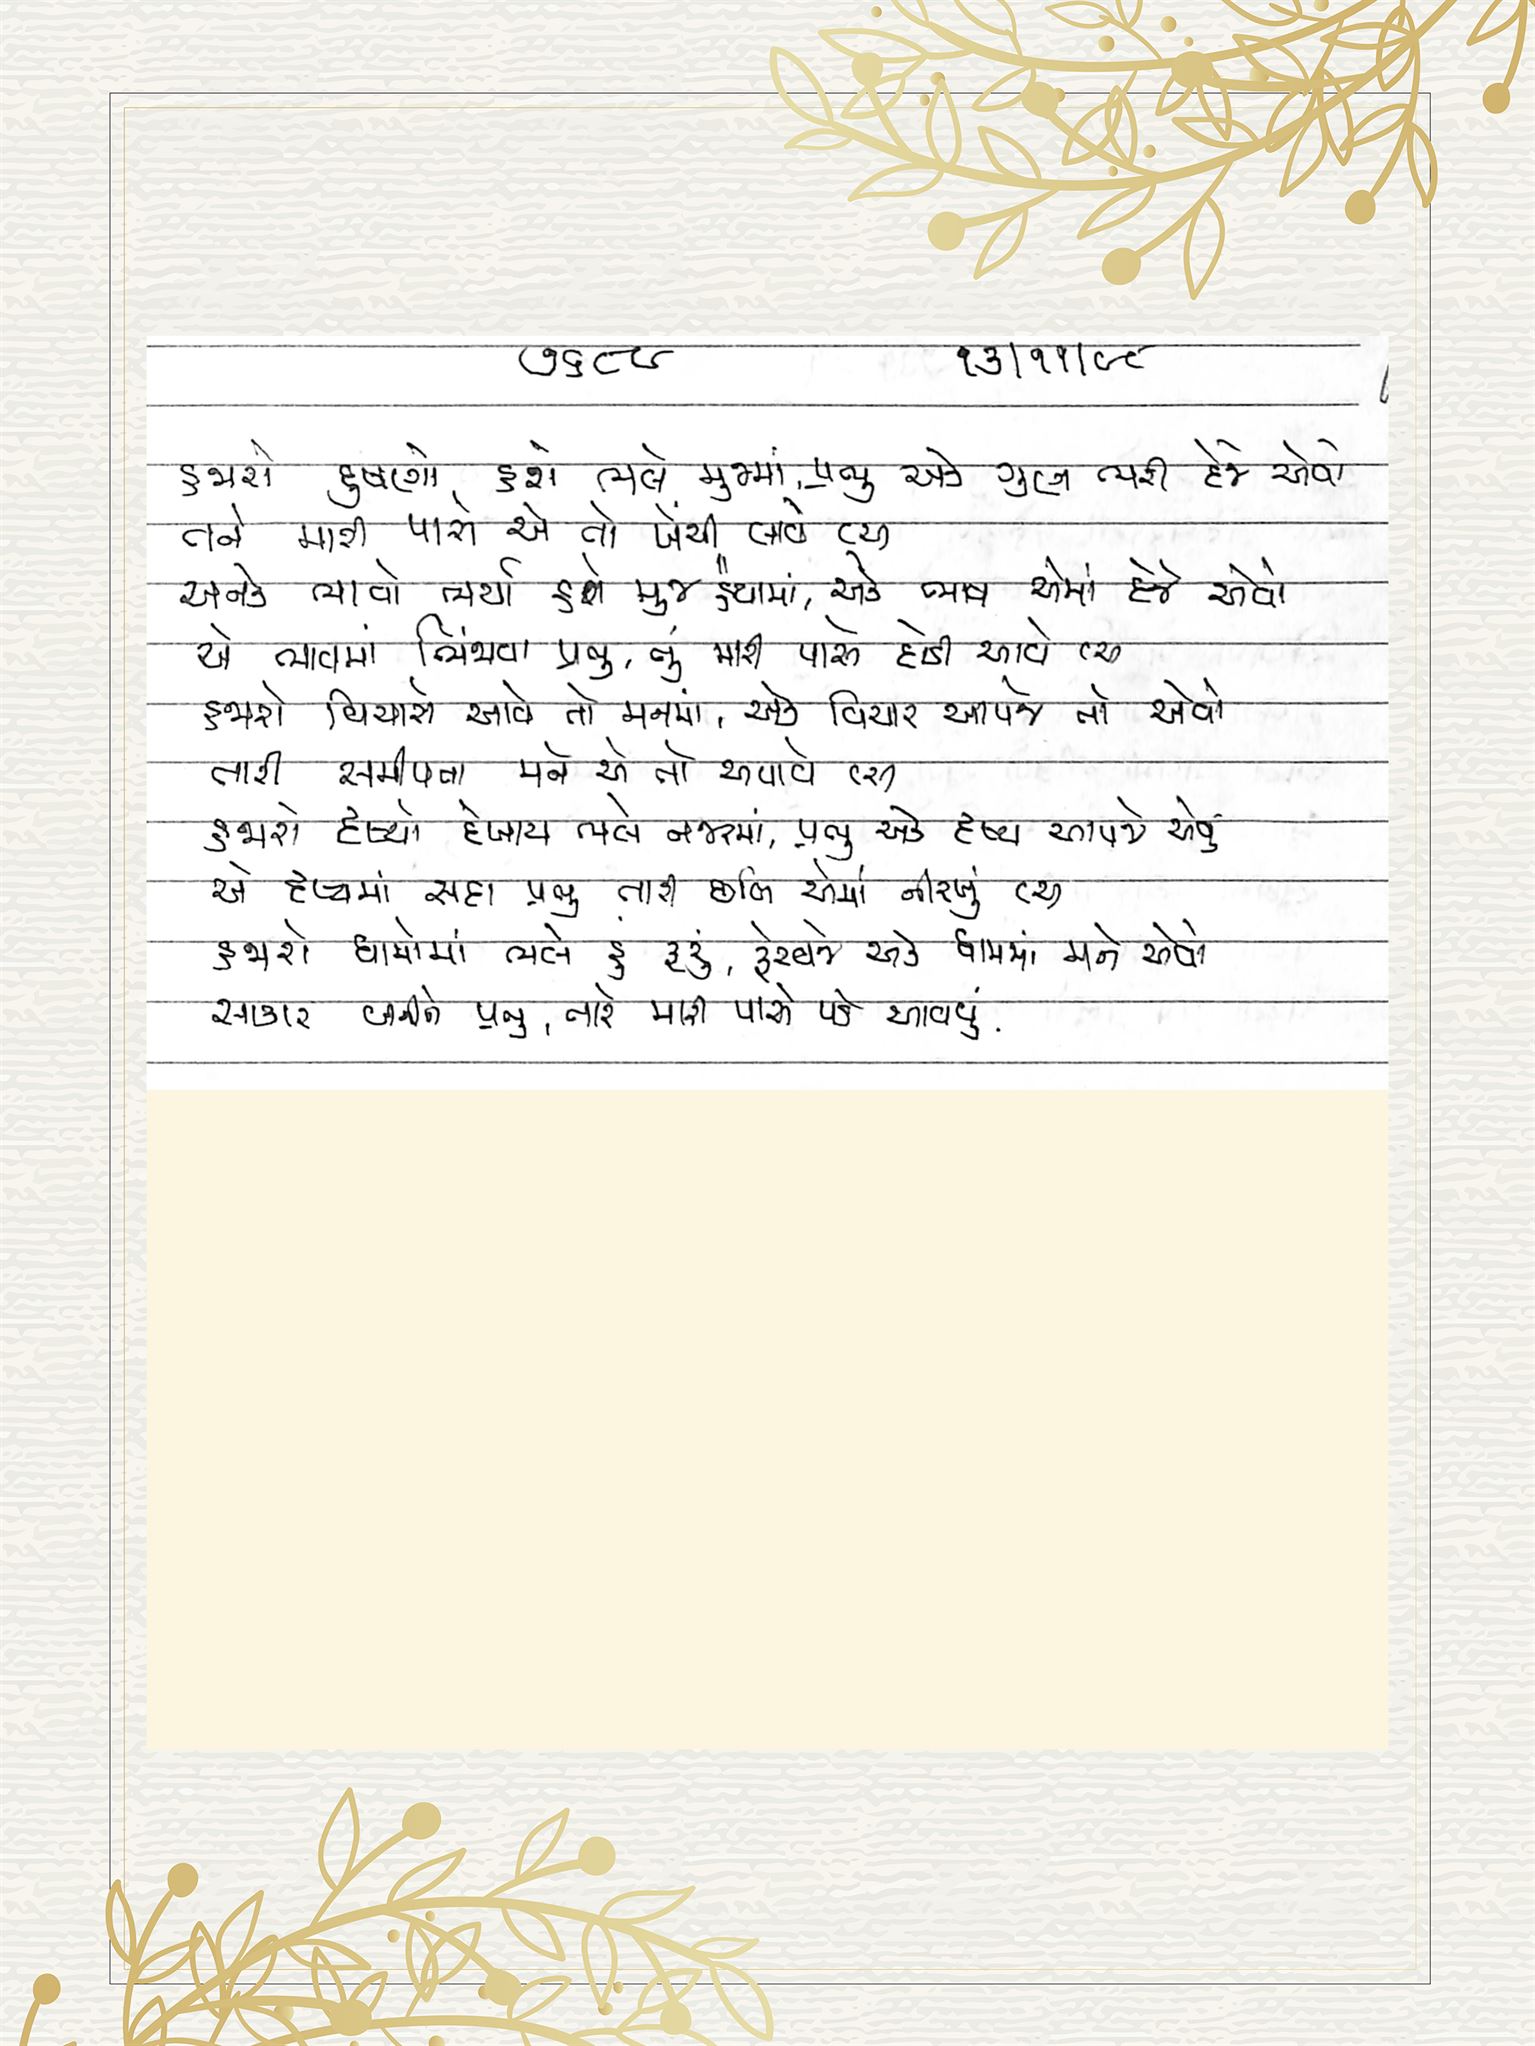 ૭૬૯૮ ૧૩/૧૧/૯૮
હજારો દુષણો હશે ભલે મુજમાં, પ્રભુ એક ગુણ ભરી દેજે એવો
તને મારી પાસે એ તો ખેંચી લાવે (૨)
અનેક ભાવો ભર્યા હશે મુજ હૈયામાં, એક ભાવ એમાં દેજે એવો
એ ભાવમાં ભિંજાવા પ્રભુ, તું મારી પાસે દોડી આવે (૨)
હજારો વિચારો આવે તો મનમાં, એક વિચાર આપજે તો એવો
તારી સમીપતા મને એ તો અપાવે (૨)
હજારો દૃષ્યો દેખાય ભલે નજરમાં, પ્રભુ એક દૃષ્ય આપજે એવું
એ દૃષ્યમાં સદા પ્રભુ તારી છબિ એમાં નીરખું (૨)
હજારો ધામોમાં ભલે હું ફરું, ફેરવજે એક ધામમાં મને એવો
સાકાર બનીને પ્રભુ, તારે મારી પાસે પડે આવવું.